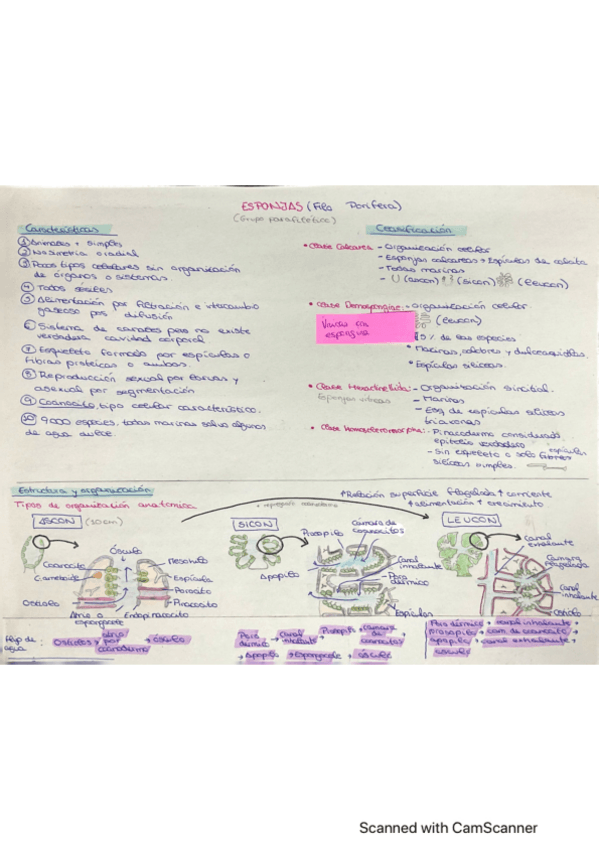 ESPONJAS (Filo Porifera)
(Grupo parafilético)
Características
① Animales + simples
② No simetría o radial
③ Pocos tipos celulares sin organización
de órganos o sistemas
④ Todos sésiles
⑤ Alimentación por filtración e intercambio
gaseoso por difusión
⑥ Sistema de canales pero no existe
verdadera cavidad corporal
⑦ Esqueleto formado por espículas o
fibras proteicas o ambos.
⑧ Reproducción sexual por larvas y
asexual por segmentación
⑨ Coanocito, tipo celular característico.
⑩ 9.000 especies, todas marinas salvo algunos
de agua dulce.
Clasificación
• Clase Calcarea - Organización celular
- Esponjas calcáreas → Espículas de calcita
- Todas marinas
- (Ascon) (Sicon) (leucon)
• Clase Demospongiae: - Organización celular
(leucon)
5% de las especies
* Marinas, salobres y dulceacuícolas.
* Espículas silíceas.
• Clase Hexactinellida: - Organización sincitial.
Esponjas vítreas
- Marinas
- Esq de espículas silíceas
triaxonas
• Clase Homoscleromorpha: - Pinacodermo considerado
epitelio verdadero
- Sin esqueleto o solo fibras espículas
silíceas simples.
Estructura y organización
Tipos de organización anatómica
↑ Relación superficie flagelada ↑ corriente
↑ alimentación ↑ crecimiento
ASCON (10cm)
Ósculo
Coanocito
Mesohilo
Espícula
Porocito
Pinacocito
Ostiolo
SICON
Prosopilo
Cámara de
coanocitos
Apopilo
Canal
inhalante
Poro
dérmico
Espículas
LEUCON
Canal
exhalante
Cámara
flagelada
Canal
inhalante
Ostiolo
Flujo de
agua
Ostiolos → → ósculo
Poro dérmico → canal inhalante → Prosopilo → cámara de coanocitos
→ Apopilo → Espongocele → ósculo
Poro dérmico → canal inhalante →
prosopilo → cam. de coanocitos →
apopilo → canal exhalante →
ósculo
Scanned with CamScanner